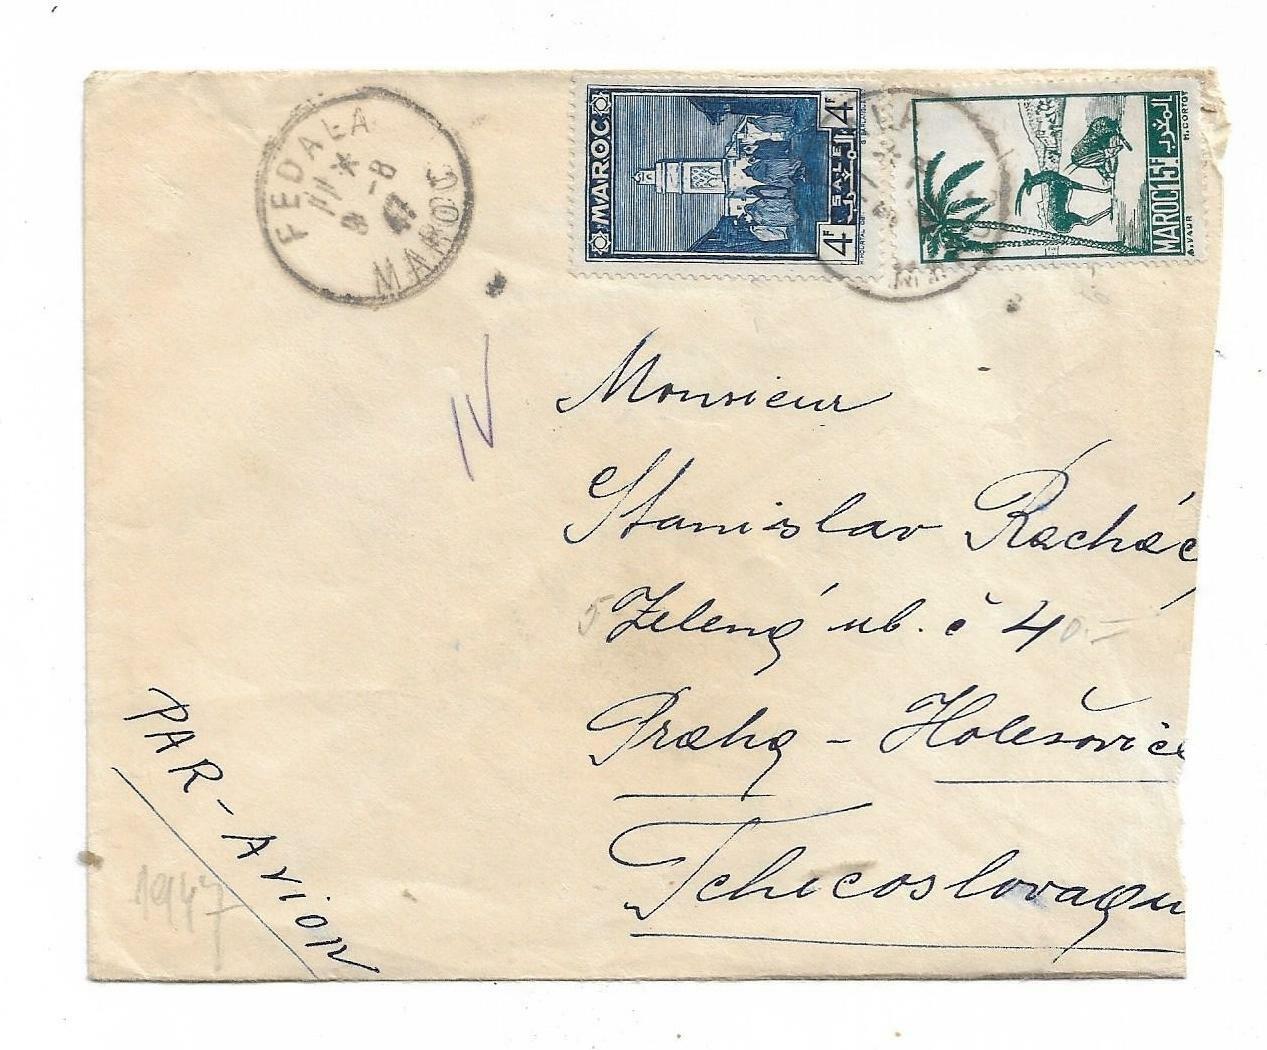 FEDALA
* 
9 -8
47
MAROC
MAROC
4F
SALÉ
4F
MAROC 15F
المغرب
H. CORTOT
A. VAUR
IV
Monsieur
Stanislav Rachác
5 Zelená ul. č 40
Praha - Holešovice
Tchecoslovaqu
PAR-AVION
1947